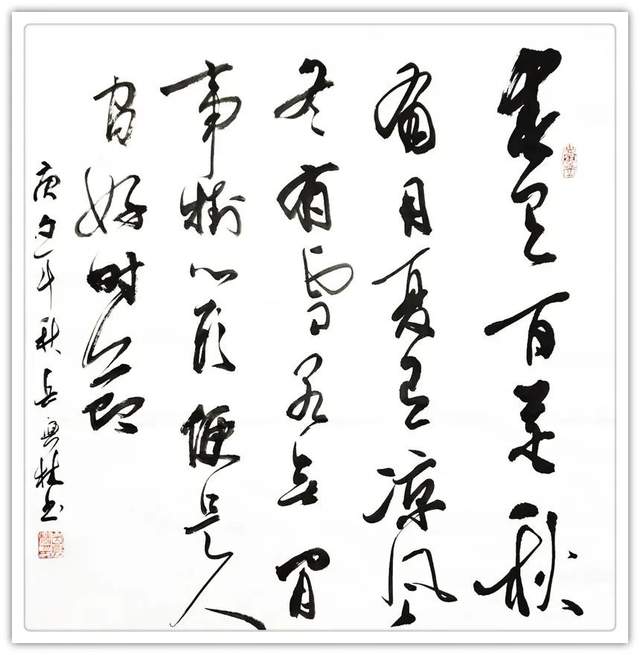 春有百花秋
有月夏有凉风
冬有雪若无闲
事挂心头便是人
间好时节
庚子年秋林书